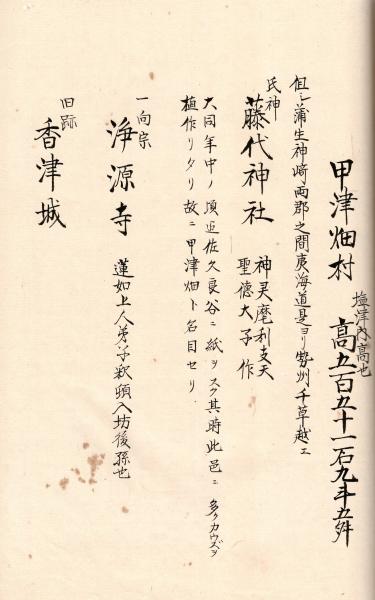 甲津畑村 高五百五十一石九斗五舛
塩津内高也
但シ蒲生神﨑両郡之間夷海道是ヨリ勢州千草越エ
氏神
藤代神社 神灵麾利支天
聖德大子作
大同年中ノ頃迠佐久良谷ニ紙ヲスク其時此邑ニ多クカウズヲ
植作リタリ故ニ甲津畑ト名目セリ
一向宗
浄源寺 蓮如上人弟子釈頭入坊後孫也
旧跡
香津城